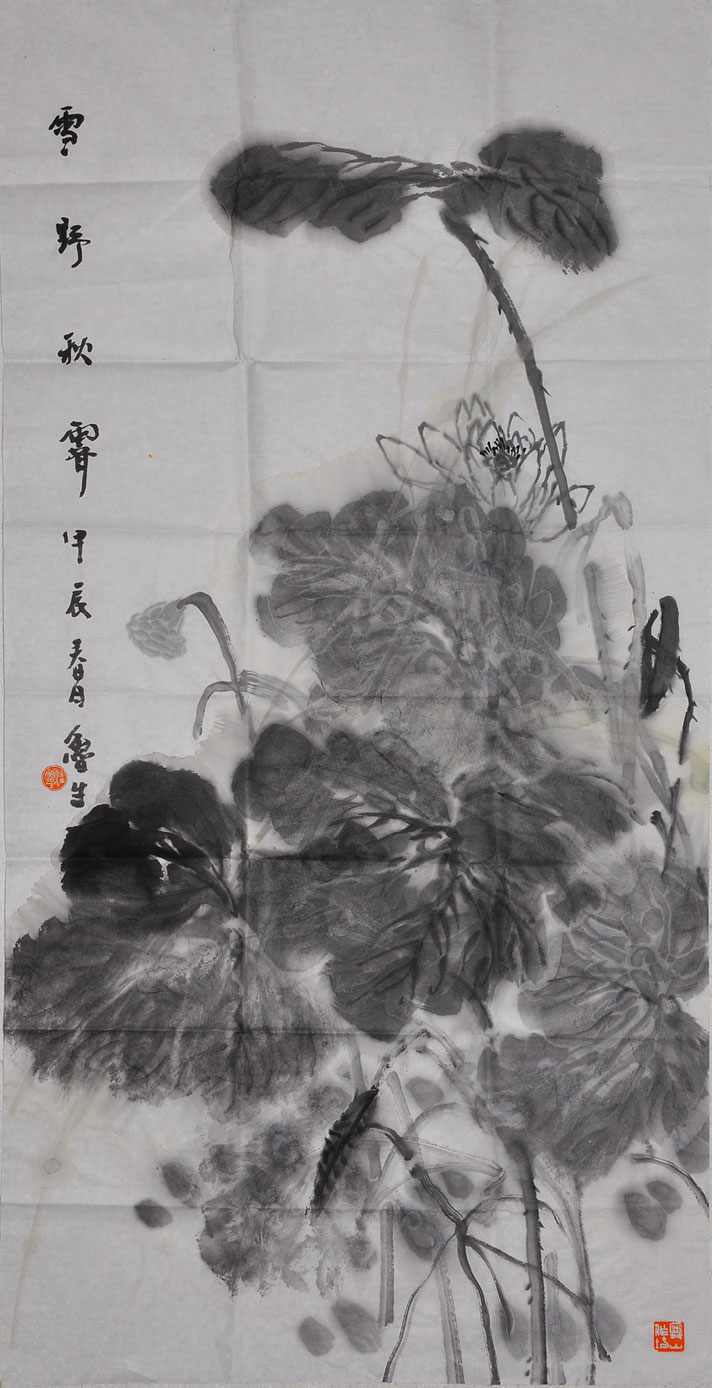 雪野秋霽甲辰春月魯生